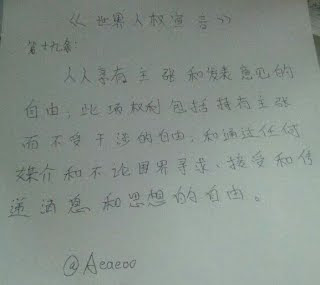 《世界人权宣言》
第十九条:
人人享有主张和发表意见的
自由；此项权利包括持有主张
而不受干涉的自由；和通过任何
媒介和不论国界寻求、接受和传
递消息和思想的自由。
@Aeaeoo